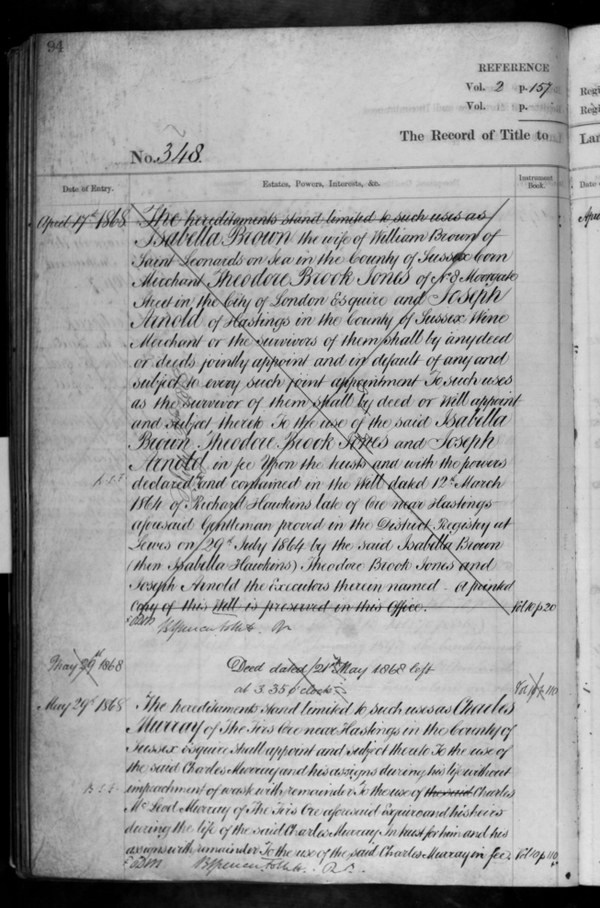 94
REFERENCE
Vol. 2 p. 157
Vol. p.
The Record of Title to
No. 348.
Date of Entry.
Estates, Powers, Interests, &c.
Instrument Book.
April 17th 1868
The hereditaments stand limited to such uses as
Isabella Brown the wife of William Brown of
Saint Leonards on Sea in the County of Sussex Corn
Merchant Theodore Brook Jones of No 8 Moorgate
Street in the City of London Esquire and Joseph
Arnold of Hastings in the County of Sussex Wine
Merchant or the survivors of them shall by any deed
or deeds jointly appoint and in default of any and
subject to every such joint appointment To such uses
as the survivor of them shall by deed or Will appoint
and subject thereto To the use of the said Isabella
Brown Theodore Brook Jones and Joseph
Arnold in fee Upon the trusts and with the powers
declared and contained in the Will dated 12th March
1864 of Richard Hawkins late of Ore near Hastings
aforesaid Gentleman proved in the District Registry at
Lewes on 29th July 1864 by the said Isabella Brown
(then Isabella Hawkins) Theodore Brook Jones and
Joseph Arnold the Executors therein named - A printed
Copy of this Will is preserved in this Office.
Vol 10 p 20
May 29th 1868
Deed dated 21st May 1868 left
at 3.35 o'clock
Vol 10 p 110
May 29th 1868
The hereditaments stand limited to such uses as Charles
Murray of The Firs Ore near Hastings in the County of
Sussex Esquire shall appoint and subject thereto To the use of
the said Charles Murray and his assigns during his life without
impeachment of waste with remainder To the use of the said Charles
Mc Leod Murray of The Firs Ore aforesaid Esquire and his heirs
during the life of the said Charles Murray In trust for him and his
assigns with remainder To the use of the said Charles Murray in fee.
Vol 10 p 110
Regi
Regi
Lan
Date o
Apri